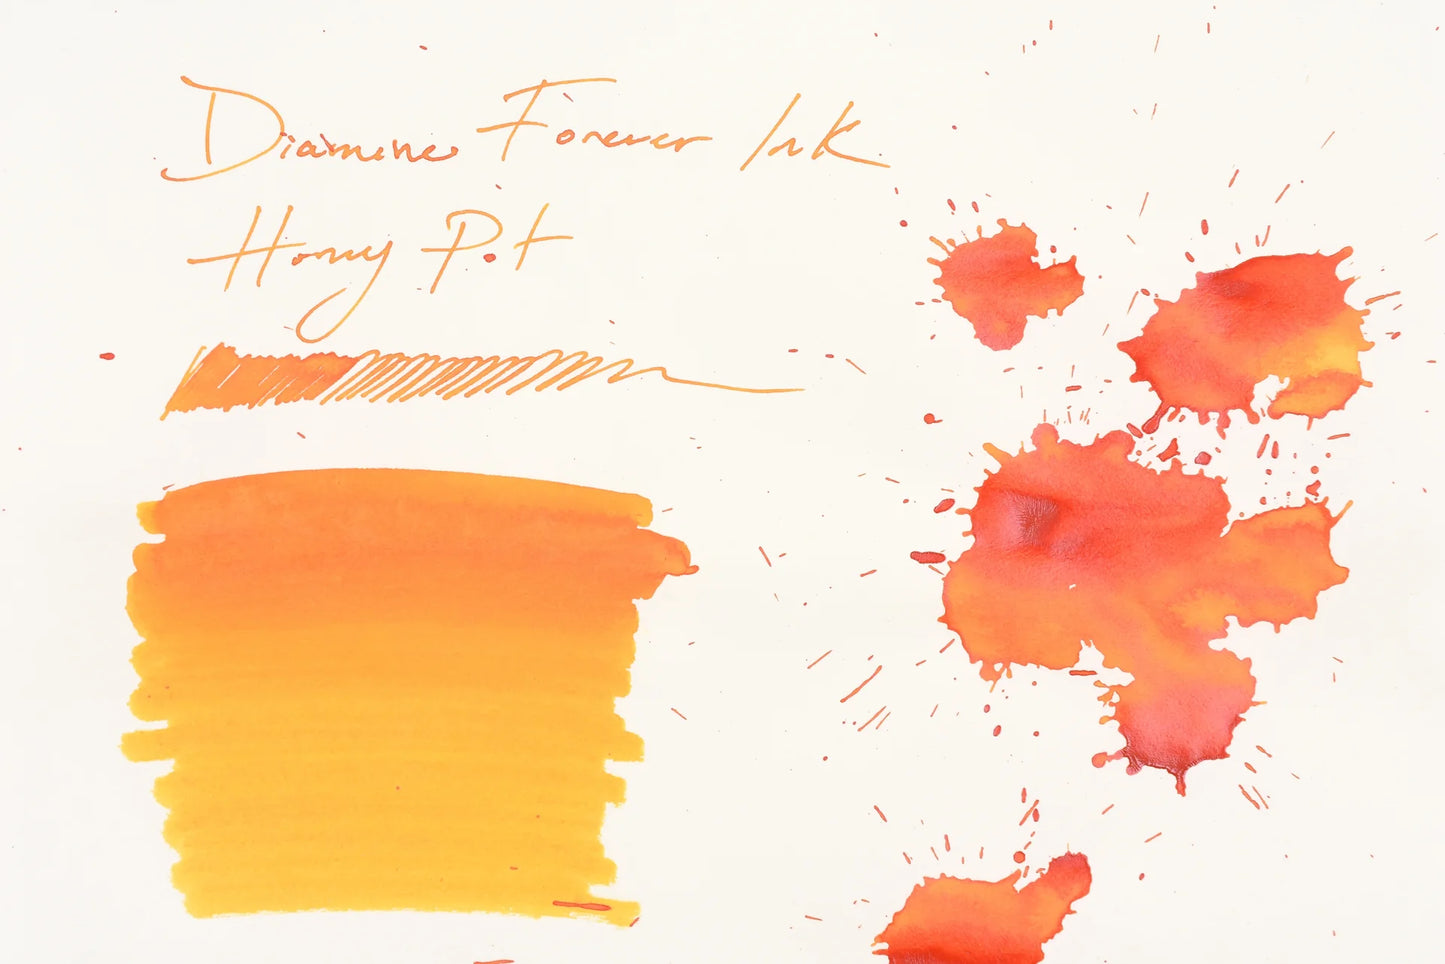 Diamine Forever Ink
Honey Pot